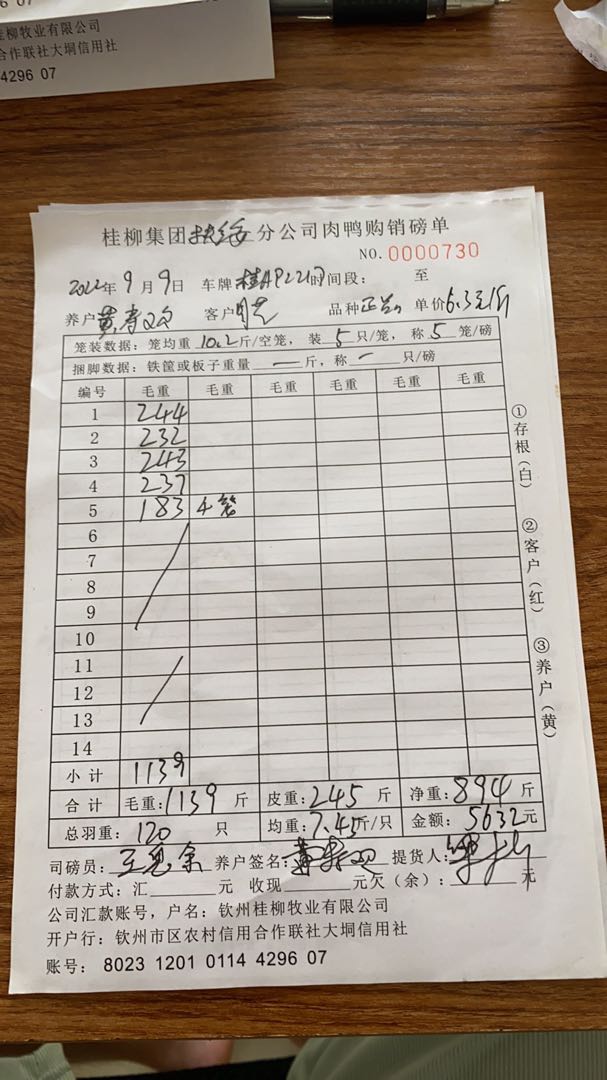 06 07
桂柳牧业有限公司
合作联社大垌信用社
4296 07
桂柳集团扶绥分公司肉鸭购销磅单
NO.0000730
2022年9月9日 车牌 时间段： 至
养户 客户 品种 单价6.3元/斤
笼装数据：笼均重10.2斤/空笼，装5只/笼，称5笼/磅
捆脚数据：铁筐或板子重量—斤，称—只/磅
编号 毛重 毛重 毛重 毛重 毛重 毛重
1 244
2 232
3 243
4 237
5 183 4笼
6
7
8
9
10
11
12
13
14
小计 1139
合计 毛重：1139斤 皮重：245斤 净重：894斤
总羽重：120只 均重：7.45斤/只 金额：5632元
司磅员： 养户签名： 提货人：
付款方式：汇 元 收现 元欠（余）： 元
公司汇款账号，户名：钦州桂柳牧业有限公司
开户行：钦州市区农村信用合作联社大垌信用社
账号：8023 1201 0114 4296 07
①存根（白）
②客户（红）
③养户（黄）